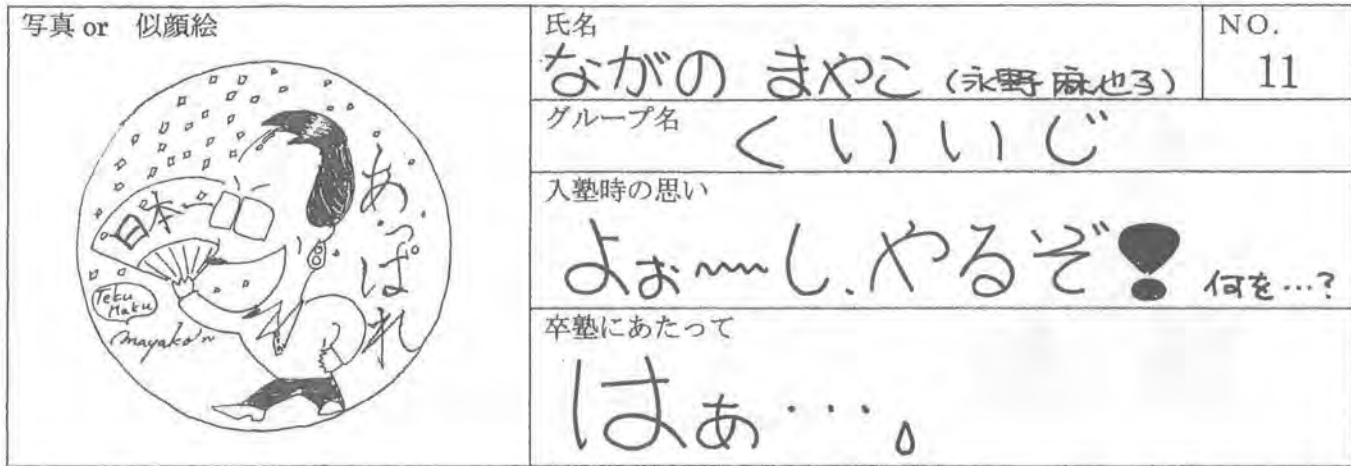 写真 or 似顔絵
日本一
あっぱれ
Teku
Maku
mayako'n
氏名
ながの まやこ (永野 麻也子)
NO.
11
グループ名
くいいじ
入塾時の思い
よぉ〜し、やるぞ! 何を…?
卒塾にあたって
はぁ…。